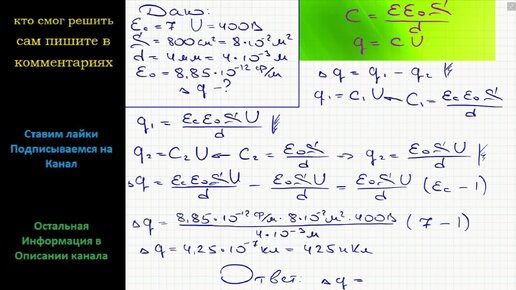 кто смог решить
сам пишите в
комментариях
Ставим лайки
Подписываемся на
Канал
Остальная
Информация в
Описании канала
Дано:
εc = 7 U = 400В
S = 800 см² = 8·10⁻² м²
d = 4 мм = 4·10⁻³ м
ε₀ = 8,85·10⁻¹² Ф/м
Δq - ?
C = εε₀S/d
q = CU
Δq = q₁ - q₂
q₁ = C₁U ← C₁ = εcε₀S/d
q₁ = εcε₀SU/d
q₂ = C₂U ← C₂ = ε₀S/d ⇒ q₂ = ε₀SU/d
Δq = εcε₀SU/d - ε₀SU/d = ε₀SU/d (εc - 1)
Δq = 8,85·10⁻¹² Ф/м · 8·10⁻² м² · 400В / 4·10⁻³ м (7 - 1)
Δq = 4,25·10⁻⁷ Кл = 425 нКл
Ответ: Δq =